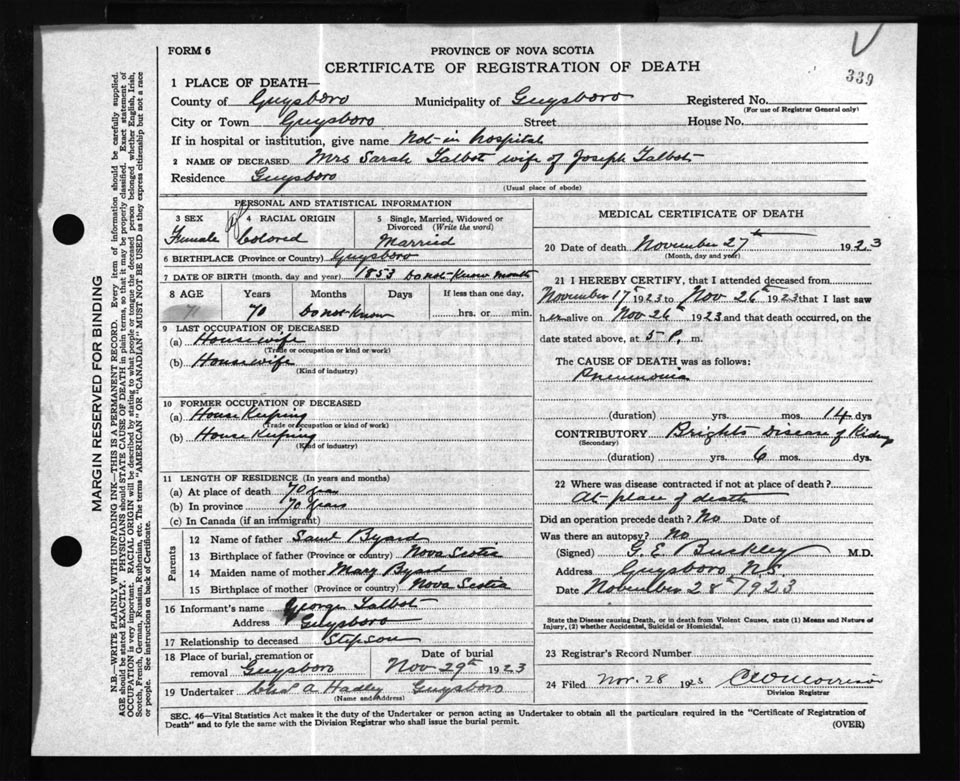 FORM 6
PROVINCE OF NOVA SCOTIA
CERTIFICATE OF REGISTRATION OF DEATH
339
MARGIN RESERVED FOR BINDING
N.B.—WRITE PLAINLY WITH UNFADING INK—THIS IS A PERMANENT RECORD. Every item of information should be carefully supplied.
AGE should be stated EXACTLY. PHYSICIANS should STATE CAUSE OF DEATH in plain terms, so that it may be properly classified. Exact statement of
OCCUPATION is very important. RACIAL ORIGIN will be described by stating to what people or tongue the deceased person belonged whether English, Irish,
Scotch, French, German, Russian, Ruthenian, etc. The terms "AMERICAN" OR "CANADIAN" MUST NOT BE USED as they express citizenship but not a race
or people. See instructions on back of Certificate.
1 PLACE OF DEATH—
County of Guysboro Municipality of Guysboro Registered No.
(For use of Registrar General only)
City or Town Guysboro Street House No.
If in hospital or institution, give name Not in hospital
2 NAME OF DECEASED Mrs Sarah Talbot wife of Joseph Talbot
Residence Guysboro
(Usual place of abode)
PERSONAL AND STATISTICAL INFORMATION
3 SEX 4 RACIAL ORIGIN 5 Single, Married, Widowed or
Divorced (Write the word)
Female Colored Married
6 BIRTHPLACE (Province or Country) Guysboro
7 DATE OF BIRTH (month, day and year) 1853 Do not Know month
8 AGE Years Months Days If less than one day,
71 70 Do not Know hrs. or min.
9 LAST OCCUPATION OF DECEASED
(a) House wife
(Trade or occupation or kind or work)
(b) House wife
(Kind of industry)
10 FORMER OCCUPATION OF DECEASED
(a) House Keeping
(Trade or occupation or kind of work)
(b) House Keeping
(Kind of industry)
11 LENGTH OF RESIDENCE (In years and months)
(a) At place of death 70 years
(b) In province 70 years
(c) In Canada (if an immigrant)
Parents
12 Name of father Saml Byard
13 Birthplace of father (Province or country) Nova Scotia
14 Maiden name of mother Mary Byard
15 Birthplace of mother (Province or country) Nova Scotia
16 Informant's name George Talbot
Address Guysboro
17 Relationship to deceased Stepson
18 Place of burial, cremation or
removal Guysboro
Date of burial
Nov 29th 1923
19 Undertaker Chas A. Hadley Guysboro
(Name and Address)
MEDICAL CERTIFICATE OF DEATH
20 Date of death November 27th 1923
(Month, day and year)
21 I HEREBY CERTIFY, that I attended deceased from
November 17th 1923 to Nov 26th 1923 that I last saw
her alive on Nov 26th 1923 and that death occurred, on the
date stated above, at 5 P. m.
The CAUSE OF DEATH was as follows:
Pneumonia
(duration) yrs. mos. 14 dys
CONTRIBUTORY Brights Disease of Kidneys
(Secondary)
(duration) yrs. 6 mos. dys.
22 Where was disease contracted if not at place of death?
At place of death
Did an operation precede death? No Date of
Was there an autopsy? No
(Signed) G. E. Buckley M.D.
Address Guysboro N.S.
Date November 28th 1923
State the Disease causing Death, or in death from Violent Causes, state (1) Means and Nature of
Injury, (2) whether Accidental, Suicidal or Homicidal.
23 Registrar's Record Number
24 Filed Nov. 28 1923 C W Morrison
Division Registrar
SEC. 46—Vital Statistics Act makes it the duty of the Undertaker or person acting as Undertaker to obtain all the particulars required in the "Certificate of Registration of
Death" and to fyle the same with the Division Registrar who shall issue the burial permit.
(OVER)